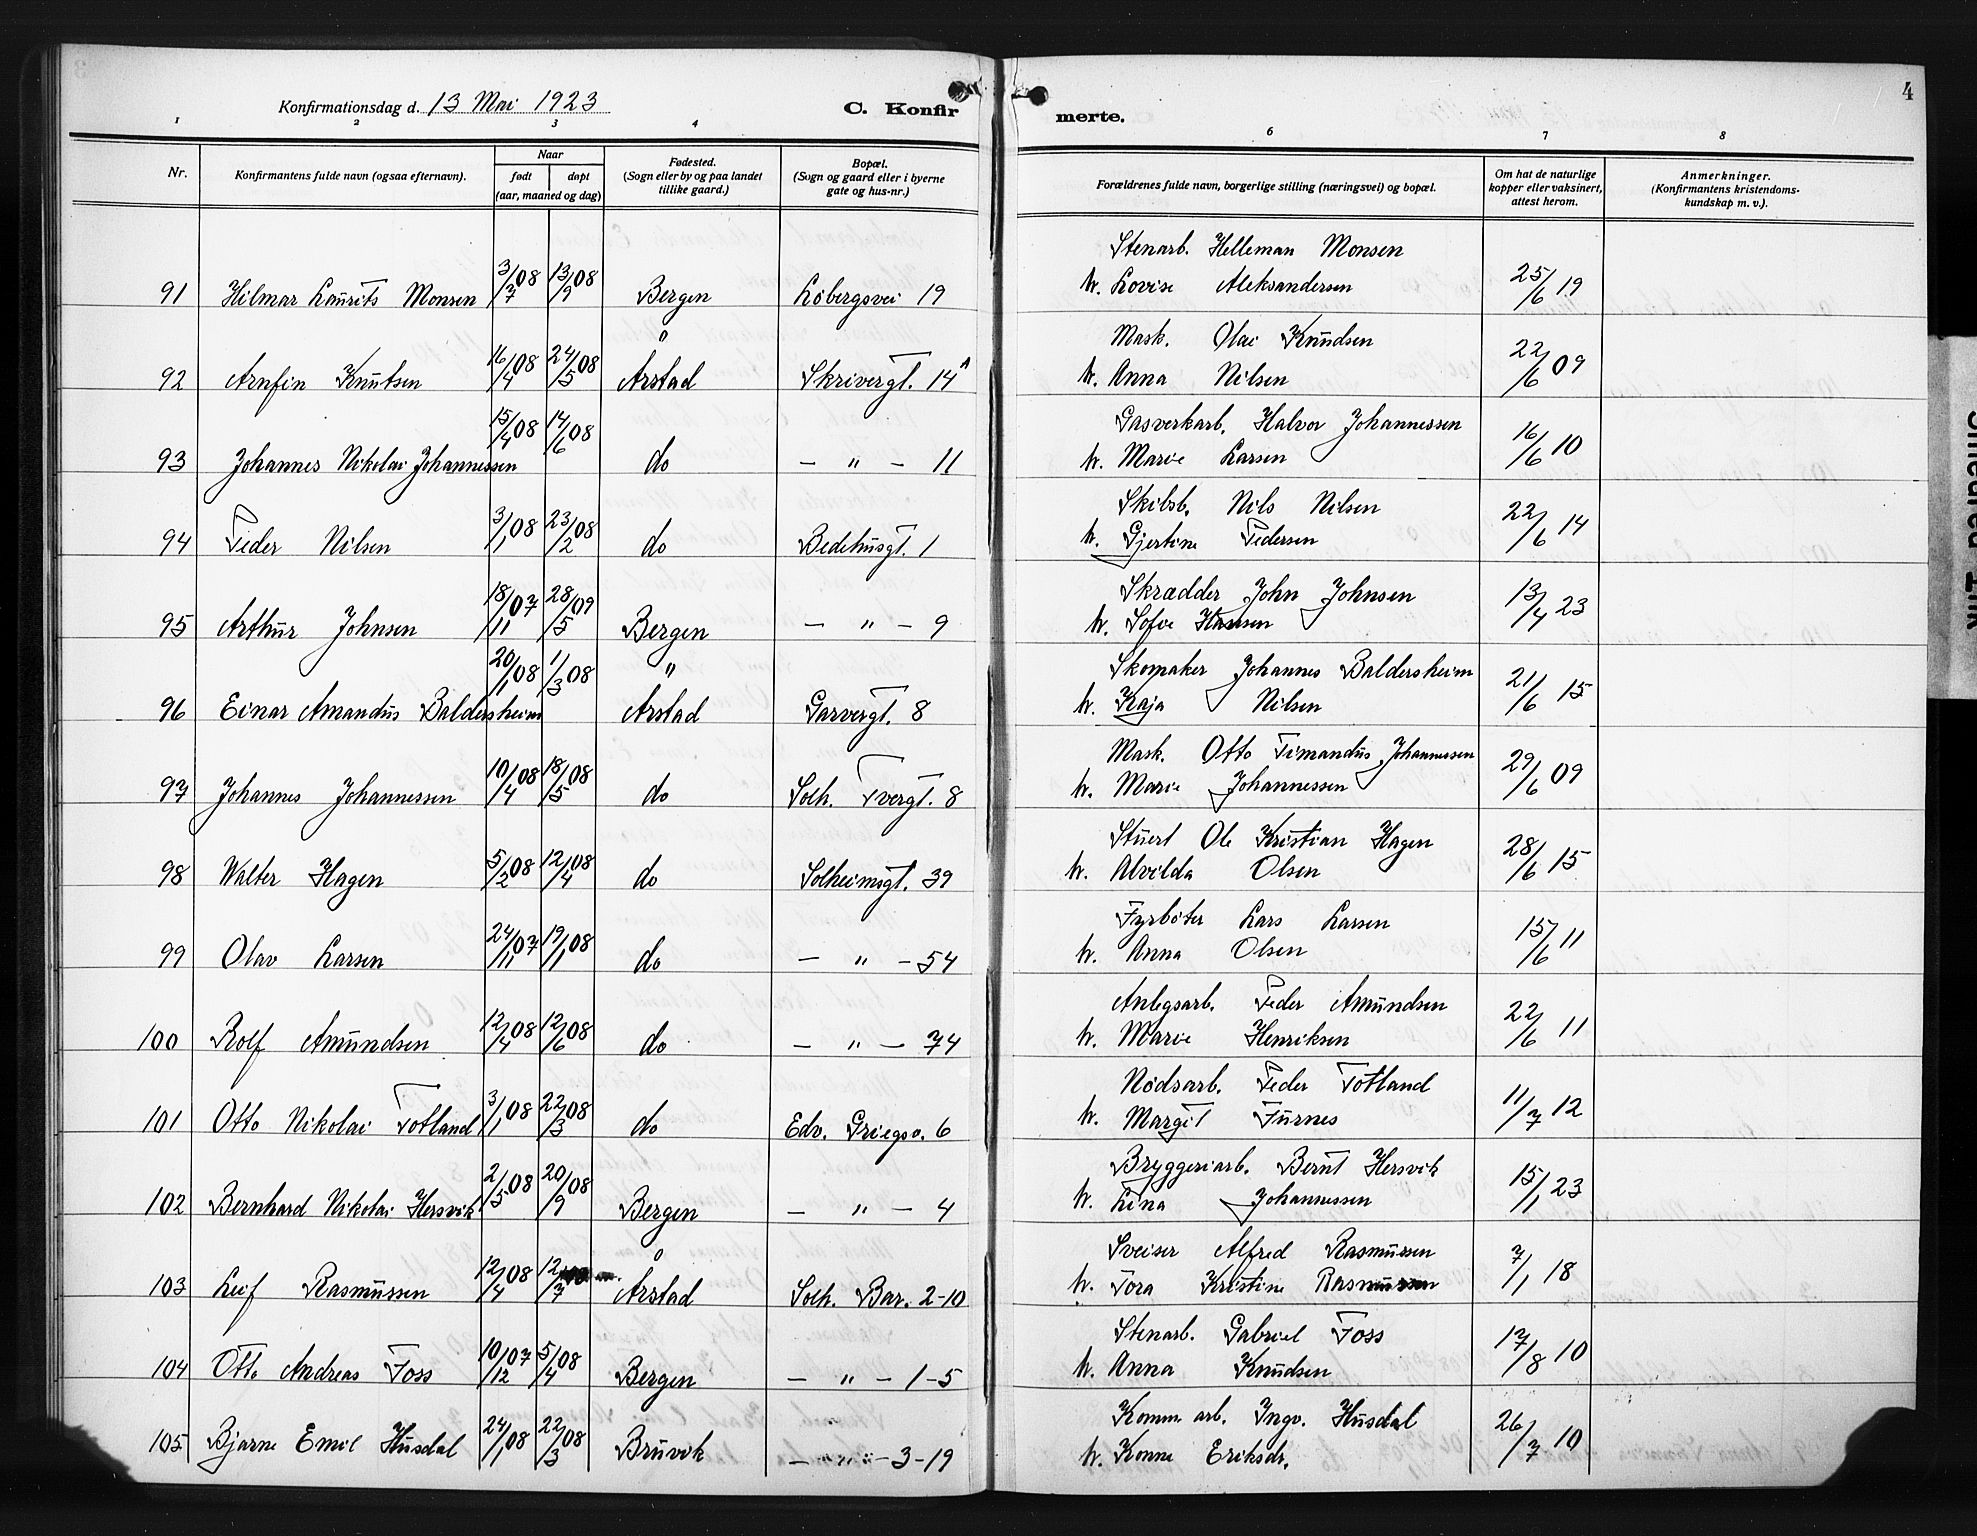 Konfirmationsdag d. 13 Mai 1923
C. Konfir
merte.
4
1 2 3 4
6 7 8
Nr.
Konfirmantens fulde navn (ogsaa efternavn).
Naar
født
døpt
(aar, maaned og dag)
Fødested.
(Sogn eller by og paa landet
tillike gaard.)
Bopæl.
(Sogn og gaard eller i byerne
gate og hus-nr.)
Forældrenes fulde navn, borgerlige stilling (næringsvei) og bopæl.
Om hat de naturlige
kopper eller vaksinert,
attest herom.
Anmerkninger.
(Konfirmantens kristendoms-
kundskap m. v.).
Stenarb. Helleman Monsen
91 Hilmar Laurits Monsen 3/7 08 13/9 08 Bergen Løbergsvei 19 h. Lovise Aleksandersen 25/6 19
Mask. Olai Knudsen
92 Arnfin Knutsen 16/4 08 24/5 08 Årstad Skrivergt. 14A h. Anna Nilsen 22/6 09
Gasverkarb. Halvor Johannessen
93 Johannes Nikolai Johannessen 15/4 08 14/6 08 do — " — 11 h. Marie Larsen 16/6 10
Skibsb. Nils Nilsen
94 Peder Nilsen 3/1 08 23/2 08 do Bedehusgt. 1 h. Gjertine Pedersen 22/6 14
Skrædder John Johnsen
95 Arthur Johnsen 18/11 07 28/5 09 Bergen — " — 9 h. Sofie Hansen 13/4 23
Skomaker Johannes Baldersheim
96 Einar Amandus Baldersheim 20/1 08 1/3 08 Årstad Garvergt. 8 h. Kaja Nilsen 21/6 15
Mask. Otto Timandus Johannessen
97 Johannes Johannessen 10/4 08 18/5 08 do Solh. Tvergt. 8 h. Marie Johannessen 29/6 09
Stuert Ole Kristian Hagen
98 Walter Hagen 5/2 08 12/4 08 do Solheimsgt. 39 h. Alvilda Olsen 28/6 15
Fyrbøter Lars Larsen
99 Olav Larsen 24/11 07 19/1 08 do — " — 54 h. Anna Olsen 15/6 11
Anlegsarb. Peder Amundsen
100 Rolf Amundsen 12/4 08 12/6 08 do — " — 74 h. Marie Henriksen 22/6 11
Nødsarb. Peder Totland
101 Otto Nikolai Totland 3/1 08 22/3 08 do Edv. Griegsv. 6 h. Margit Furnes 11/7 12
Bryggeriarb. Bernt Hersvik
102 Bernhard Nikolai Hersvik 2/5 08 20/9 08 Bergen — " — 4 h. Lina Johannessen 15/1 23
Sveiser Alfred Rasmussen
103 Leif Rasmussen 12/4 08 12/7 Årstad Solh. Bar. 2-10 h. Tora Kristine Rasmussen 7/1 18
Stenarb. Gabriel Foss
104 Otto Andreas Foss 10/12 07 5/4 08 Bergen — " — 1-5 h. Anna Knudsen 17/8 10
Komm. arb. Ingv. Husdal
105 Bjarne Emil Husdal 24/1 08 22/3 08 Bruvik — " " — 3-19 h. Konne Eriksdr. 26/7 10